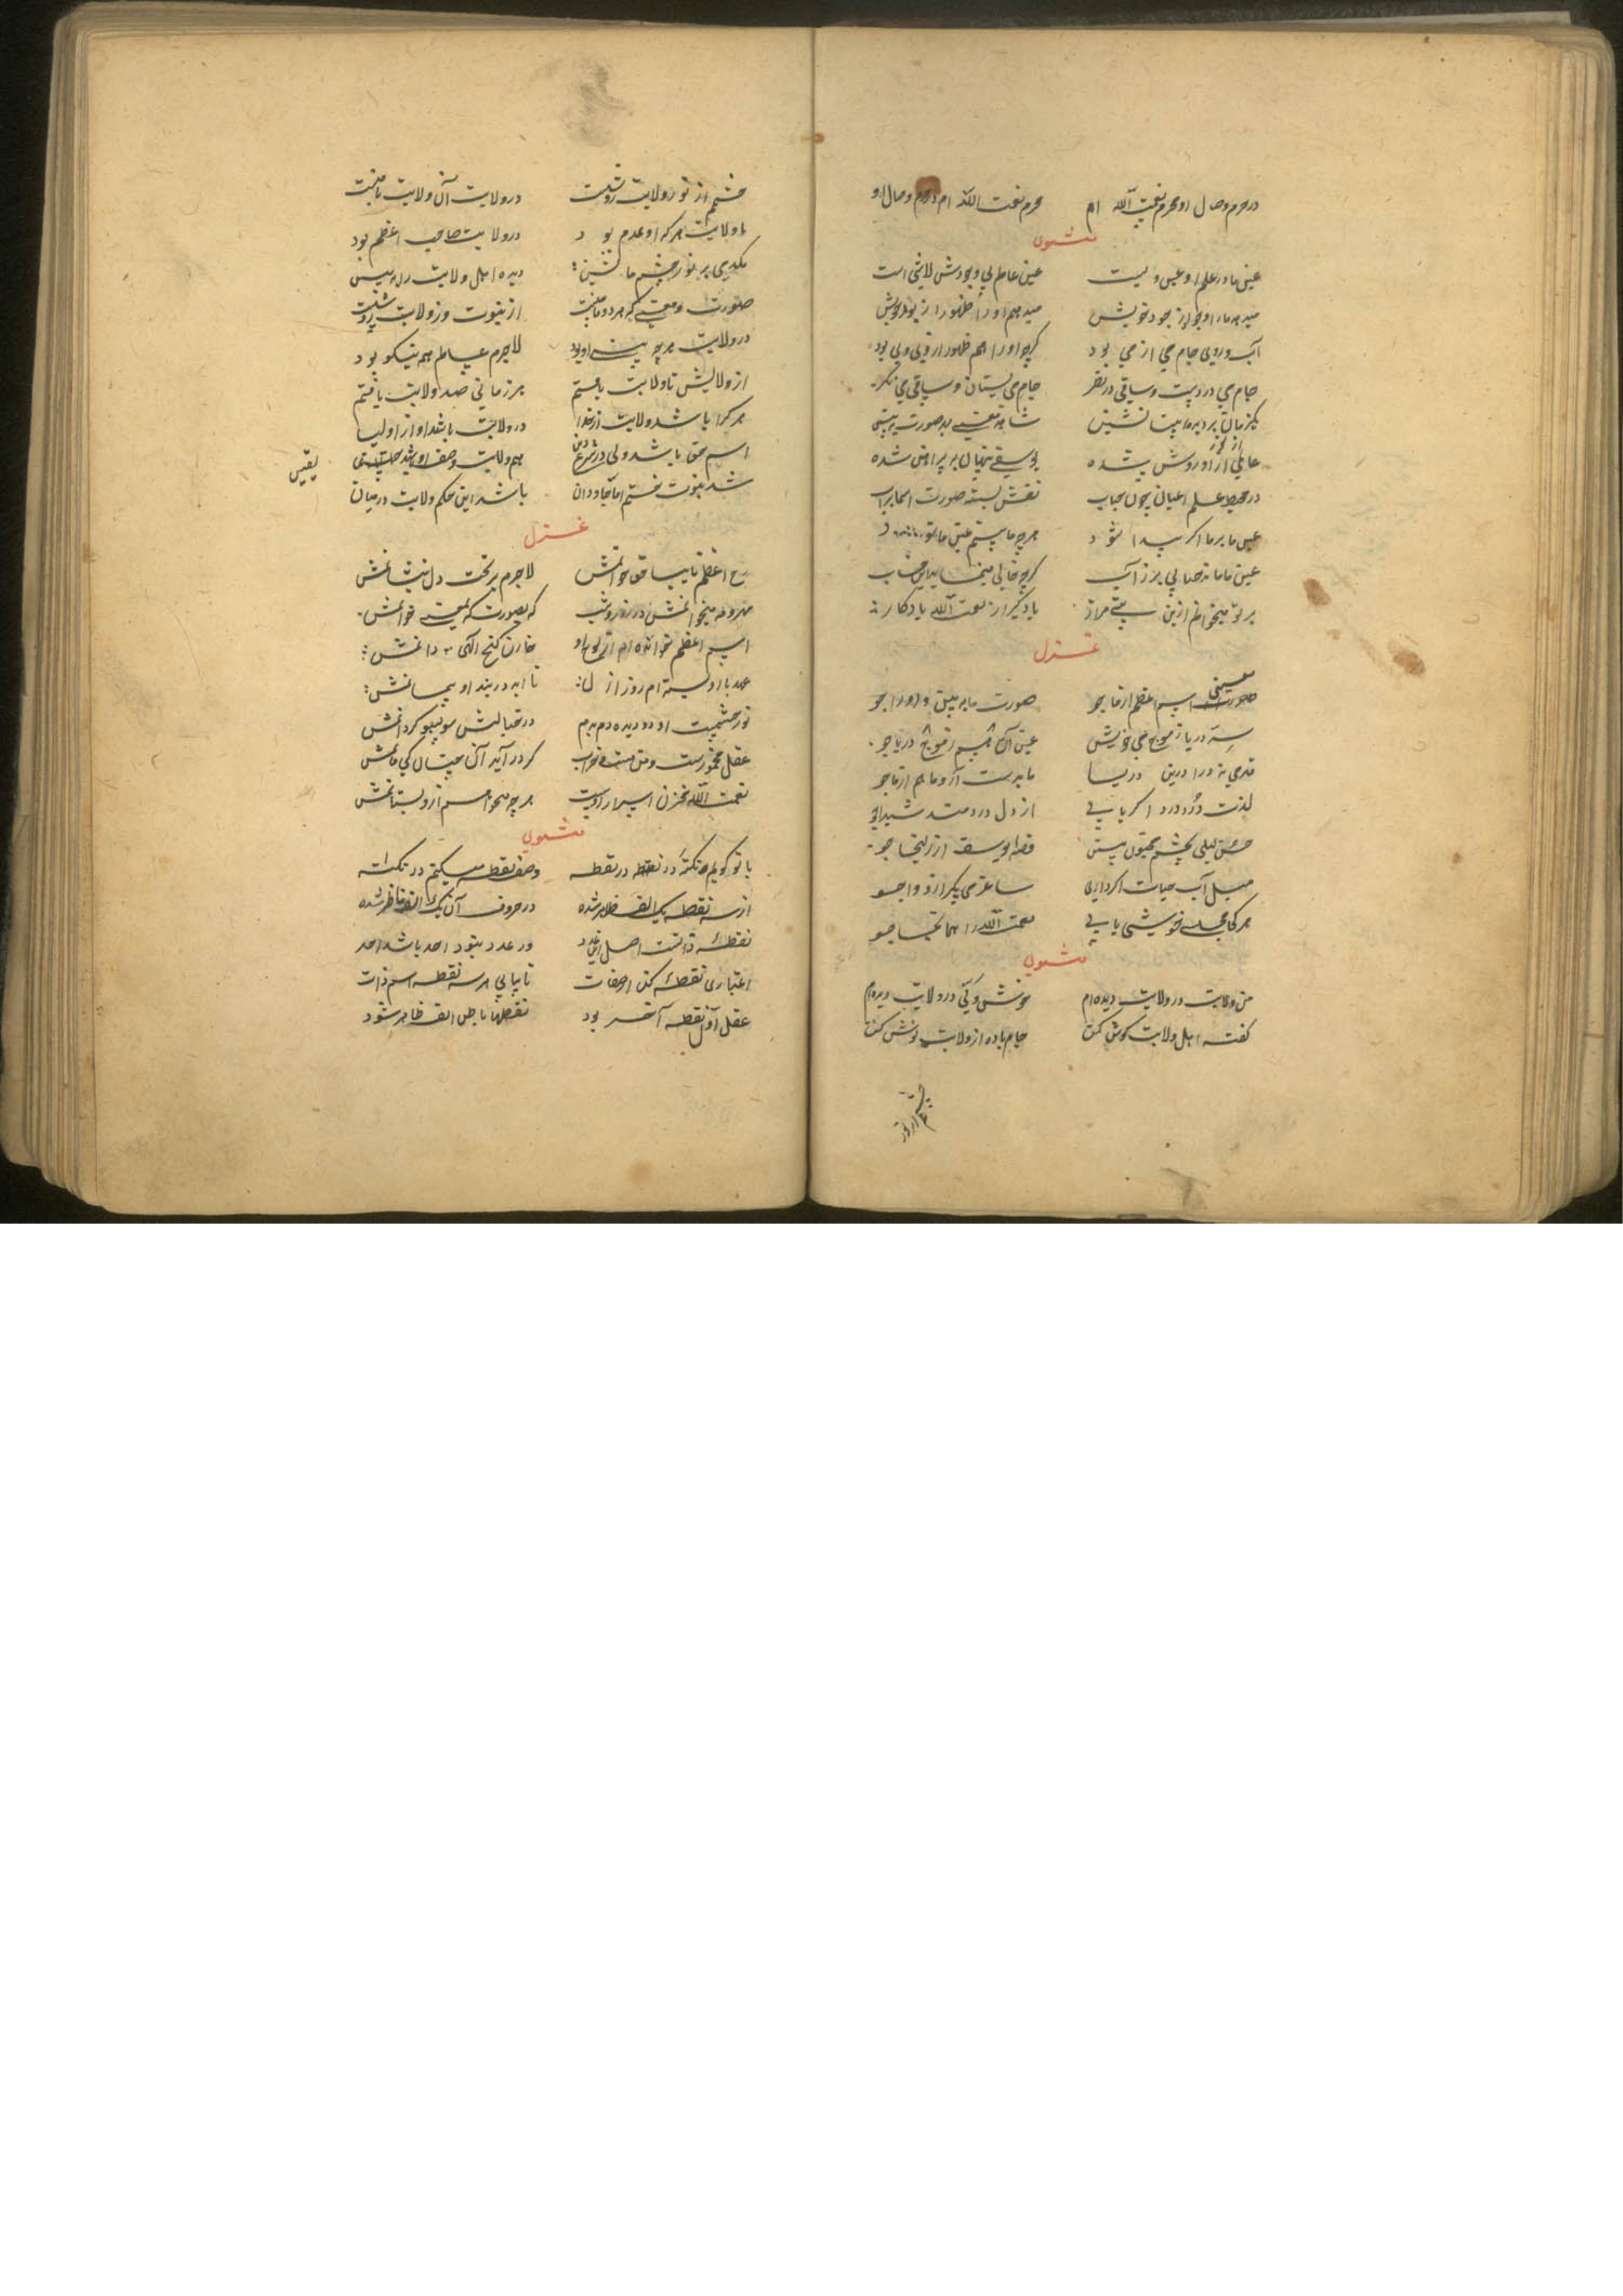 در حرم وصال او محرم نعمت الله ام محرم نعمت الله ام در حرم وصال او
مثنوی
عین ما در علم او عین ولیست عین عالم بی وجودش لاشی است
میدهد ما را وجود از جود خویش میدهیم او را ظهور از بود خویش
آب و روی جام می از می بود گرچه او را هم ظهور از وی بود
جام می در دست و ساقی در نظر جام می بستان و ساقی می نگر
یکزمان بر دیده ما نشین شاهد معنی به صورت ببین
عالمی از نور او روشن شده یوسفی پنهان به پیراهن شده
در محیط علم اعیان چون حباب نقش بسته صورت
عین ما بر ما اگر پیدا شود هرچه ما بستیم عین ما
عین ما ما ند حبابی پر ز آب گرچه خالی مینماید این حباب
بر تو میخوانم ازین بیتی مراد یاد گیر از نعمت الله یادگار
غزل
معنی اسم اعظم از ما جو صورت ما ببین و او را جو
در یا ز موج می عین آن هم ز موج دریا جو
قدمی نه درا درین دریا ما به دست آر و ما هم از ما جو
لذت درد درد اگر یابی از دل دردمند شیدا جو
حسن لیلی بچشم مجنون بین قصه یوسف از زلیخا جو
میل آب حیات اگر داری ساغر می بگیر از و وا جو
هر کجا مجلس خوشی یابی نعمت الله را همانجا جو
مثنوی
من ولایت در ولایت دیده ام خوش ولیی در ولایت دیده ام
گفته اهل ولایت گوش کن جام باده از ولایت نوش کن
چشم از نور
چشم از نور ولایت روشنست در ولایت آن ولایت با منست
با ولایت هر که او همدم بود در ولایت صاحب اعظم بود
یکدمی بر نور چشم ما نشین دیده اهل ولایت را ببین
صورت و معنی که هر دو با منست از نبوت وز ولایت روشنست
در ولایت هرچه بینی او بود لاجرم عالم همه نیکو بود
از ولایتش تا ولایت یافتم هر زمانی صد ولایت یافتم
هر کرا باشد ولایت از خدا در ولایت باشد او از اولیا
اسم حق باشد ولی در شرع دین هم ولایت وصف او باشد یقین
شد نبوت ختم اما جاودان باشد این حکم ولایت در میان
غزل
روح اعظم نایب حق خوانمش لاجرم بر تخت دل بنشانمش
مهر و مه میخوانمش در روز و شب که بصورت گه بمعنی خوانمش
اسم اعظم خوانده ام از لوح او خازن گنج الهی دانمش
عهد با او بسته ام روز ازل تا ابد در بند او پیمانمش
نور چشمست او و در دیده دم بدم در خیالش سو بسو گردانمش
عقل مخمورست و من مست و خراب گر در آید آن چنان کی مانمش
نعمت الله مخزن اسرار اوست هرچه میخواهم از و بستانمش
مثنوی
با تو گویم نکته در نقطه در نقطه وصف نقطه میکنم در نکته
از سه نقطه یک الف ظاهر شده در حروف آن یک الف ناظر شده
نقطه ذاتست اصل این عدد در عدد نبود احد باشد احد
اعتباری نقطه کن از صفات تا بیابی هر سه نقطه اسم ذات
عقل اول نقطه آخر بود نقطها باطن الف ظاهر شود